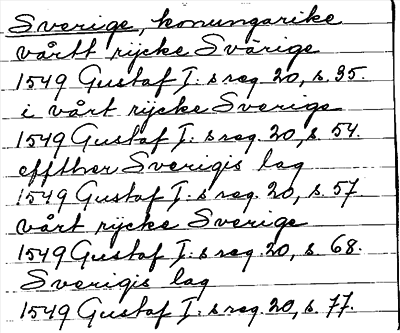 Sverige, konungarike
vårtt rijcke Svärige
1549 Gustaf I: s reg. 20, s. 35.
i vårt rijcke Sverige
1549 Gustaf I: s reg. 20, s. 54.
effther Sverigis lag
1549 Gustaf I: s reg. 20, s. 57
vårt rijcke Sverige
1549 Gustaf I: s reg. 20, s. 68.
Sverigis lag
1549 Gustaf I: s reg. 20, s. 77.